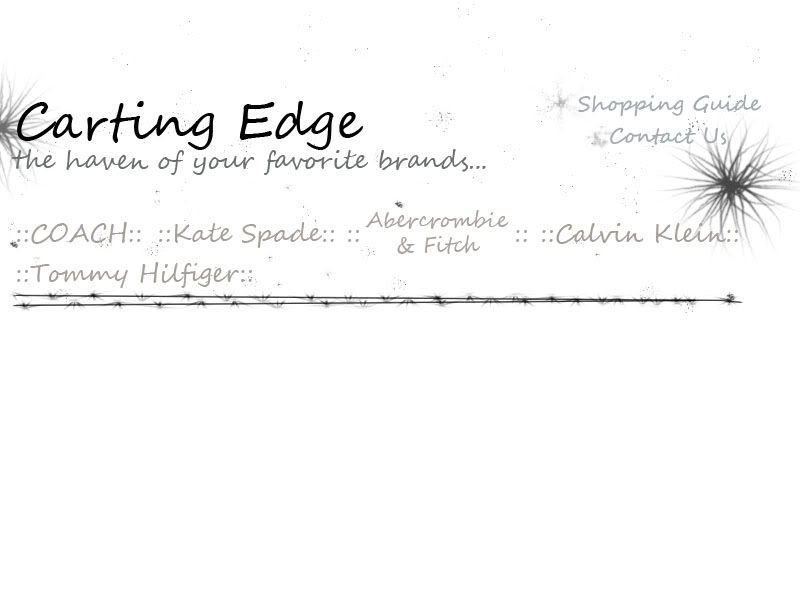 Carting Edge
the haven of your favorite brands...
Shopping Guide
Contact Us
::COACH:: ::Kate Spade:: :: Abercrombie & Fitch :: ::Calvin Klein::
::Tommy Hilfiger::